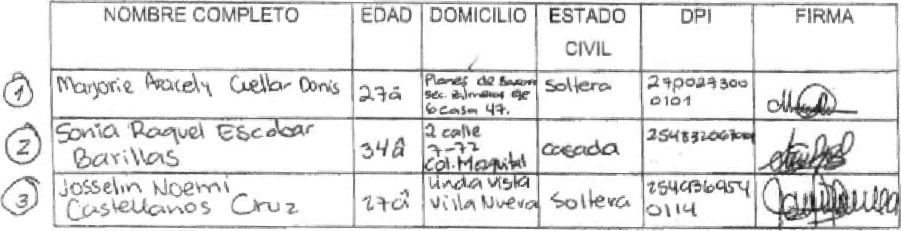 NOMBRE COMPLETO EDAD DOMICILIO ESTADO CIVIL DPI FIRMA
1 Marjorie Aracely Cuellar Donis 27a Planes de sec. eje 6 casa 47. Soltera 270027300 0101
2 Sonia Raquel Escobar Barillas 34a 2 calle 7-77 Col. Mezquital casada
3 Josselin Noemi Castellanos Cruz 27a Linda vista Villa Nueva Soltera 0114